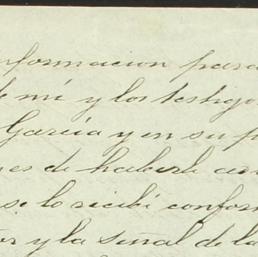 nformacion para
de mi y los testigo
Garcia y en su p
es de haberle
se lo recibi conform
or y la señal de la